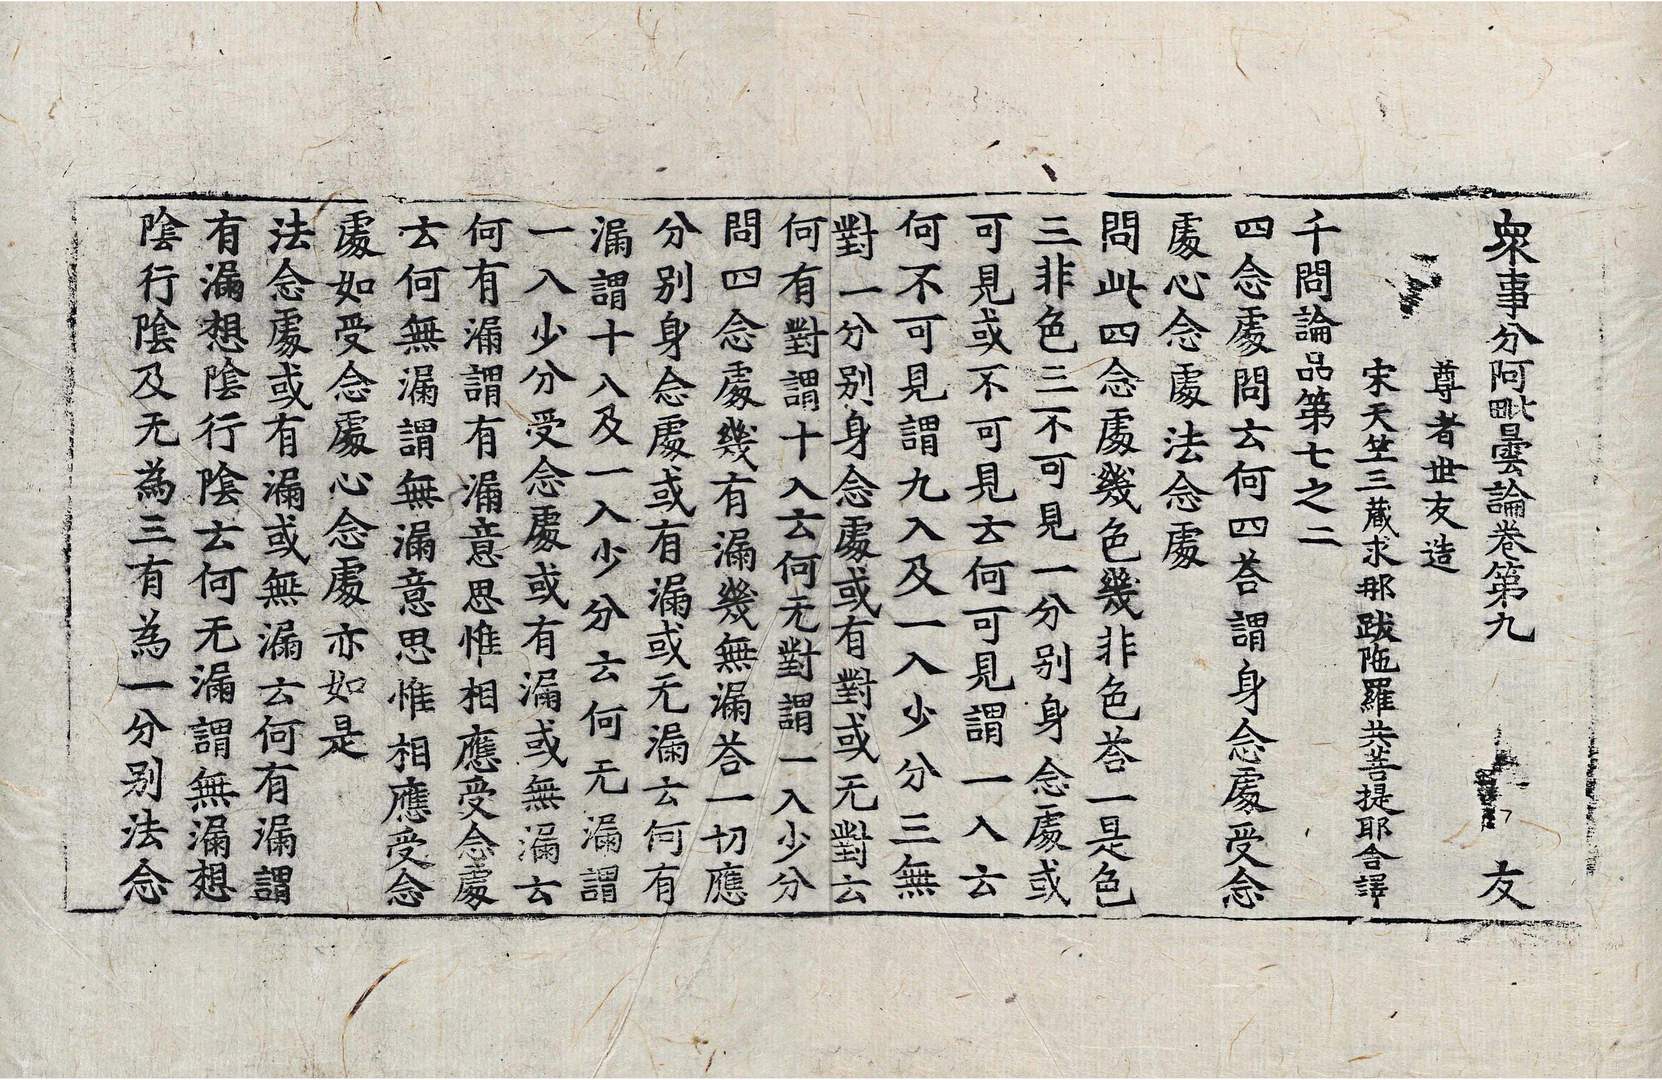 衆事分阿毗曇論卷第九 友
尊者世友造
宋天竺三藏求那跋陁羅共菩提耶舍譯
千問論品第七之二
四念處問云何四荅謂身念處受念
處心念處法念處
問此四念處幾色幾非色荅一是色
三非色三不可見一分別身念處或
可見或不可見云何可見謂一入云
何不可見謂九入及一入少分三無
對一分別身念處或有對或无對云
何有對謂十入云何无對謂一入少分
問四念處幾有漏幾無漏荅一切應
分別身念處或有漏或无漏云何有
漏謂十入及一入少分云何无漏謂
一入少分受念處或有漏或無漏云
何有漏謂有漏意思惟相應受念處
云何無漏謂無漏意思惟相應受念
處如受念處心念處亦如是
法念處或有漏或無漏云何有漏謂
有漏想陰行陰云何无漏謂無漏想
陰行陰及无為三有為一分別法念